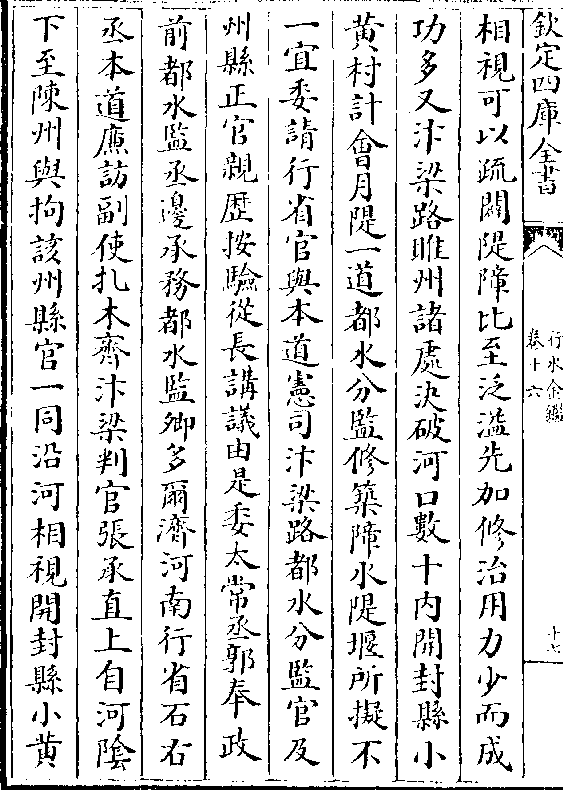 欽定四庫全書
行水金鑑
卷十六
十七
相視可以疏闢隄障比至泛溢先加修治用力少而成
功多又汴梁路睢州諸處決破河口數十内開封縣小
黄村計會月隄一道都水分監修築障水隄堰所擬不
一宜委請行省官與本道憲司汴梁路都水分監官及
州縣正官親歴按驗從長講議由是委太常丞郭奉政
前都水監丞邊承務都水監卿多爾濟河南行省石右
丞本道廉訪副使扎木齊汴梁判官張承直上自河隂
下至陳州與拘該州縣官一同沿河相視開封縣小黄